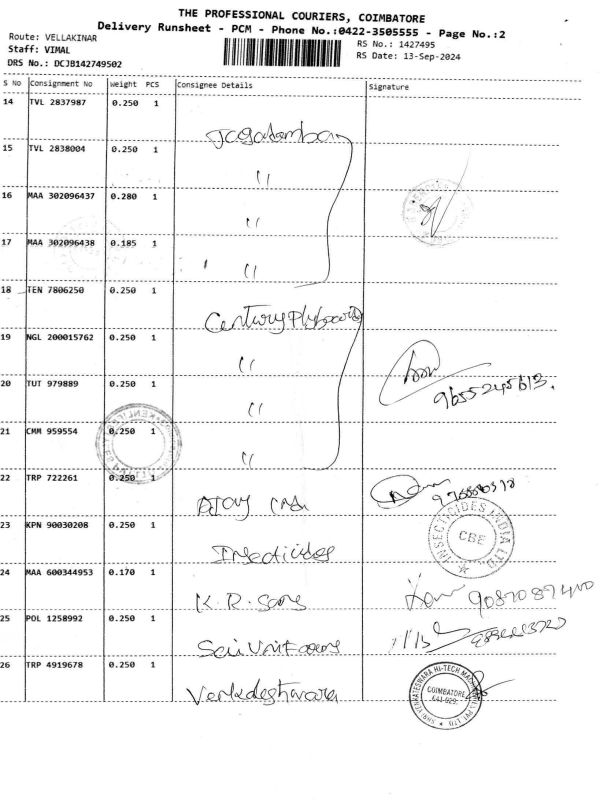 THE PROFESSIONAL COURIERS, COIMBATORE
Delivery Runsheet - PCM - Phone No.:0422-3505555 - Page No.:2
Route: VELLAKINAR
RS No.: 1427495
Staff: VIMAL
RS Date: 13-Sep-2024
DRS No.: DCJB142749502
S No Consignment No Weight PCS Consignee Details Signature
14 TVL 2837987 0.250 1 Jagatamban
15 TVL 2838004 0.250 1 "
16 MAA 302096437 0.280 1 "
17 MAA 302096438 0.185 1 "
18 TEN 7806250 0.250 1 Century Plyboards
19 NGL 200015762 0.250 1 "
20 TUT 979889 0.250 1 " 9655245613.
21 CMM 959554 0.250 1 "
22 TRP 722261 0.250 1
23 KPN 90030208 0.250 1 Insecticides
INSECTICIDES INDIA LTD CBE
24 MAA 600344953 0.170 1 K.R. Sons 9087087400
25 POL 1258992 0.250 1 Sai Uniforms
26 TRP 4919678 0.250 1 Venkadeshwara
SHRI VENKATESWARA HI-TECH MACHINERY PVT LTD COIMBATORE 641-029.